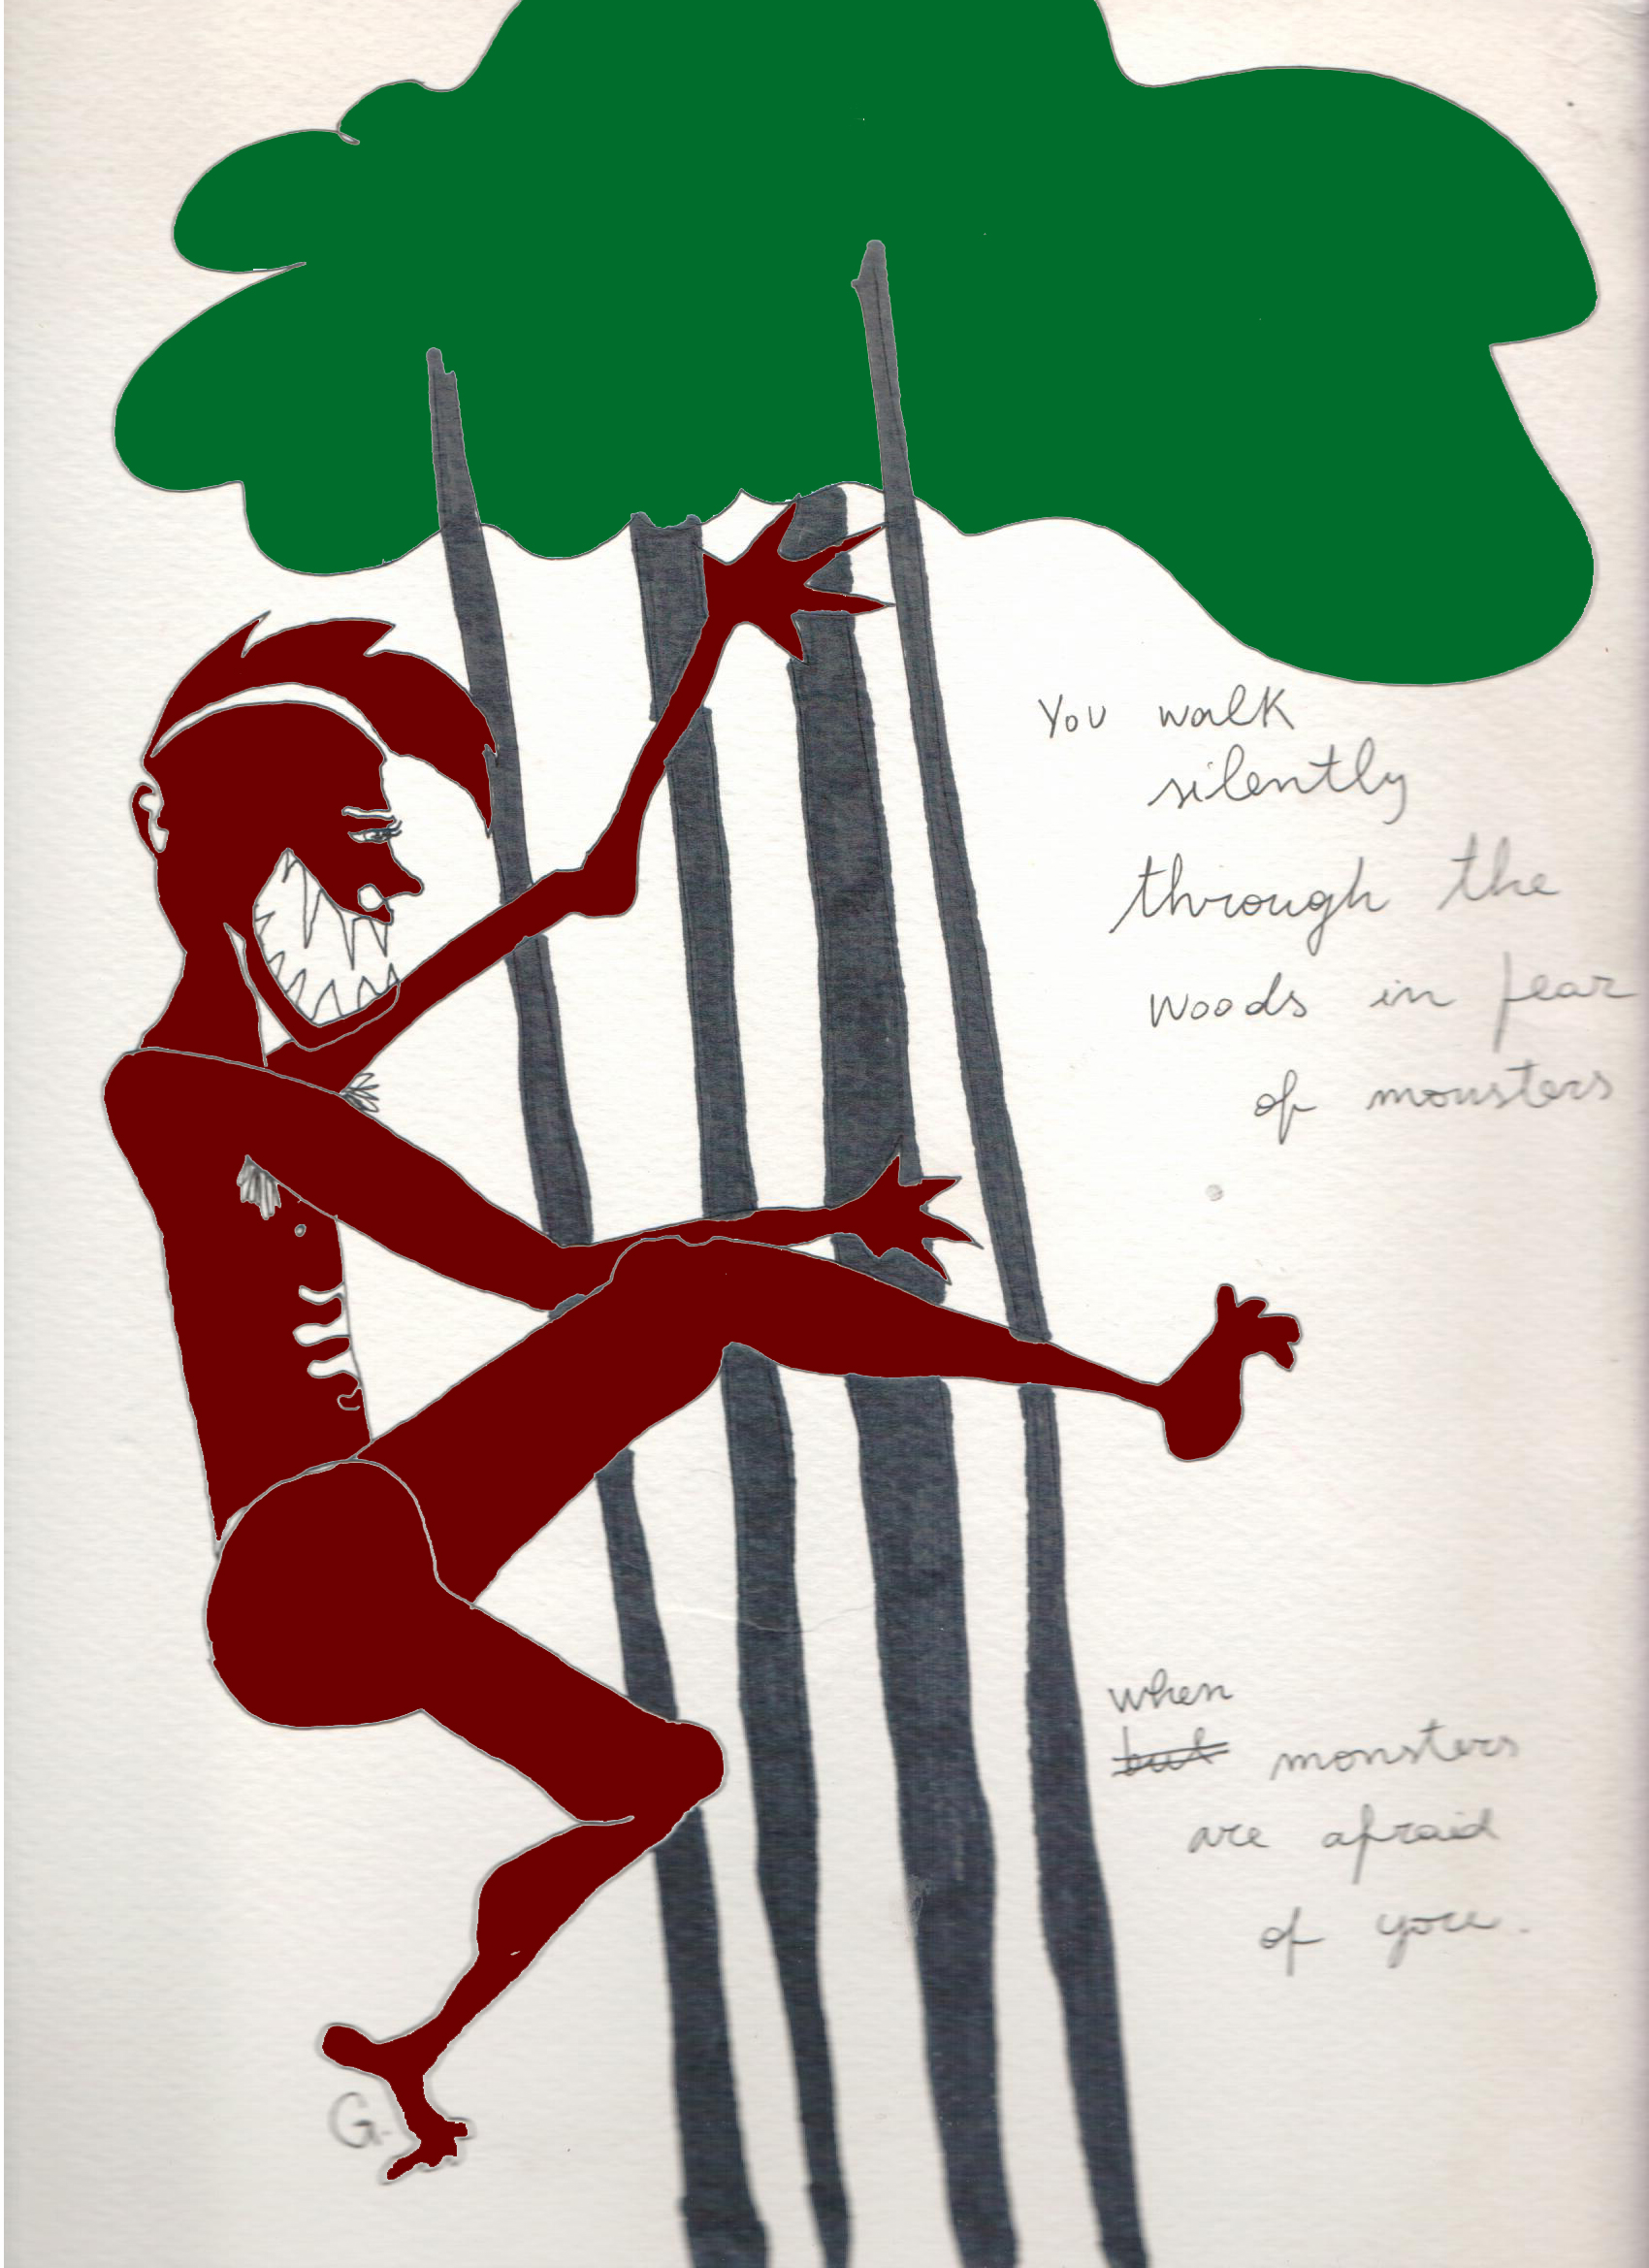 You walk
silently
through the
woods in fear
of monsters
when
but monsters
are afraid
of you.
G.